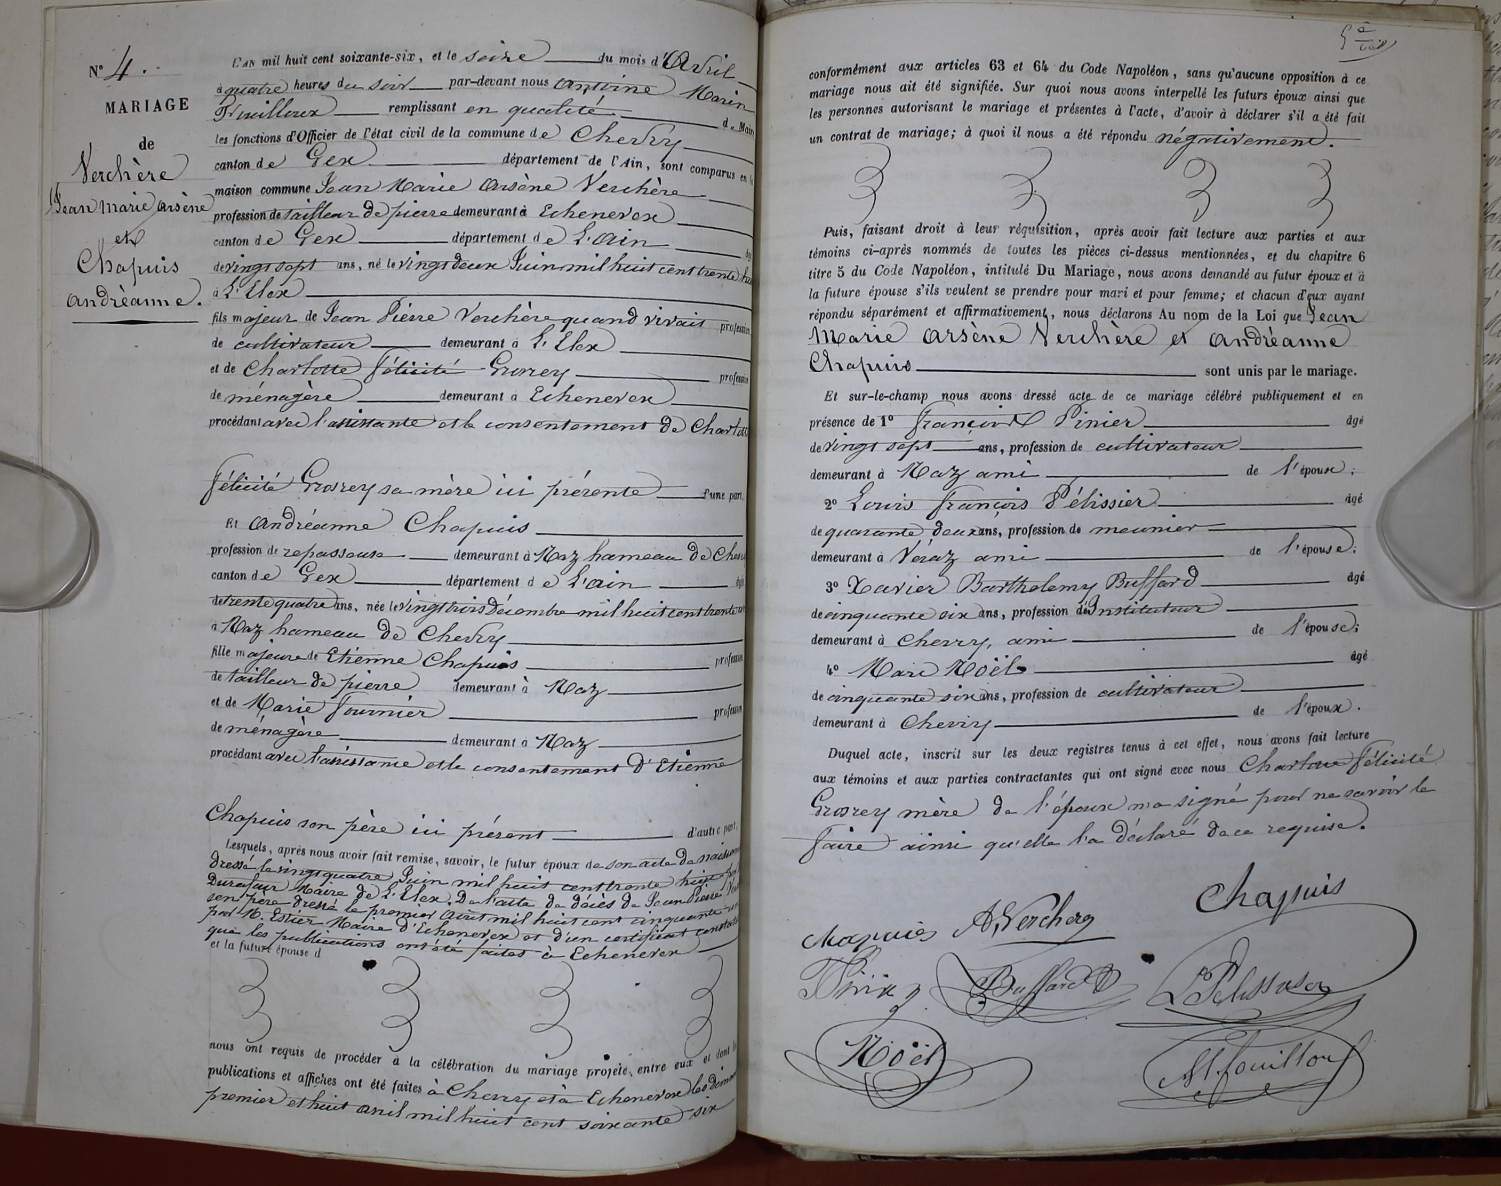 N° 4.
MARIAGE
de
Verchère
Jean Marie Arsène
et
Chapuis
Andréanne.
L'AN mil huit cent soixante-six, et le seize du mois d'Avril
à quatre heures du soir par-devant nous Antoine Marin
Fouilloux remplissant en qualité de Maire
les fonctions d'Officier de l'état civil de la commune de Chevry
canton de Gex département de l'Ain, sont comparus en la
maison commune Jean Marie Arsène Verchère
profession de tailleur de pierre demeurant à Echenevex
canton de Gex département de L'Ain âgé
de vingt sept ans, né le vingt deux Juin mil huit cent trente huit
à L'Elex
fils majeur de Jean Pierre Verchère quand vivait profession
de cultivateur demeurant à L'Elex
et de Charlotte Félicité Grosrey profession
de ménagère demeurant à Echenevex
procédant avec l'assistante et le consentement de Charlotte
Félicité Grosrey sa mère ici présente d'une part,
Et Andréanne Chapuis
profession de repasseuse demeurant à Naz hameau de Chevry
canton de Gex département de L'Ain âgée
de trente quatre ans, née le vingt trois Décembre mil huit cent trente un
à Naz hameau de Chevry
fille majeure de Etienne Chapuis profession
de tailleur de pierre demeurant à Naz
et de Marie Fournier profession
de ménagère demeurant à Naz
procédant avec l'assistance et le consentement d'Etienne
Chapuis son père ici présent d'autre part,
Lesquels, après nous avoir fait remise, savoir, le futur époux de son acte de naissance
dressé le vingt quatre Juin mil huit cent trente huit
Maire de L'Elex, De l'acte de décès de Jean Pierre
son père dressé le premier Août mil huit cent cinquante
par M. Estier Maire d'Echenevex et d'un certificat constatant
que les publications ont été faites à Echenevex
et la future épouse d
nous ont requis de procéder à la célébration du mariage projeté, entre eux et dont les
publications et affiches ont été faites à Chevry et à Echenevex les dimanches
premier et huit avril mil huit cent soixante six
conformément aux articles 63 et 64 du Code Napoléon, sans qu'aucune opposition à ce
mariage nous ait été signifiée. Sur quoi nous avons interpellé les futurs époux ainsi que
les personnes autorisant le mariage et présentes à l'acte, d'avoir à déclarer s'il a été fait
un contrat de mariage; à quoi il nous a été répondu négativement.
Puis, faisant droit à leur réquisition, après avoir fait lecture aux parties et aux
témoins ci-après nommés de toutes les pièces ci-dessus mentionnées, et du chapitre 6
titre 5 du Code Napoléon, intitulé Du Mariage, nous avons demandé au futur époux et à
la future épouse s'ils veulent se prendre pour mari et pour femme; et chacun d'eux ayant
répondu séparément et affirmativement, nous déclarons Au nom de la Loi que Jean
Marie Arsène Verchère et Andréanne
Chapuis sont unis par le mariage.
Et sur-le-champ nous avons dressé acte de ce mariage célébré publiquement et en
présence de 1° François Pinier âgé
de vingt sept ans, profession de cultivateur
demeurant à Naz ami de l'épouse;
2° Louis François Pélissier âgé
de quarante deux ans, profession de meunier
demeurant à Véraz ami de l'épouse;
3° Xavier Bartholemy Buffard âgé
de cinquante six ans, profession d'Instituteur
demeurant à Chevry, ami de l'épouse;
4° Marc Noël âgé
de cinquante six ans, profession de cultivateur
demeurant à Chevry de l'époux.
Duquel acte, inscrit sur les deux registres tenus à cet effet, nous avons fait lecture
aux témoins et aux parties contractantes qui ont signé avec nous Charlotte Félicité
Grosrey mère de l'époux n'a signé pour ne savoir le
faire ainsi qu'elle l'a déclaré de ce requise.
Chapuis
Chapuis A, Verchère
Buffard L Pelissier
Noël
M. Fouilloux